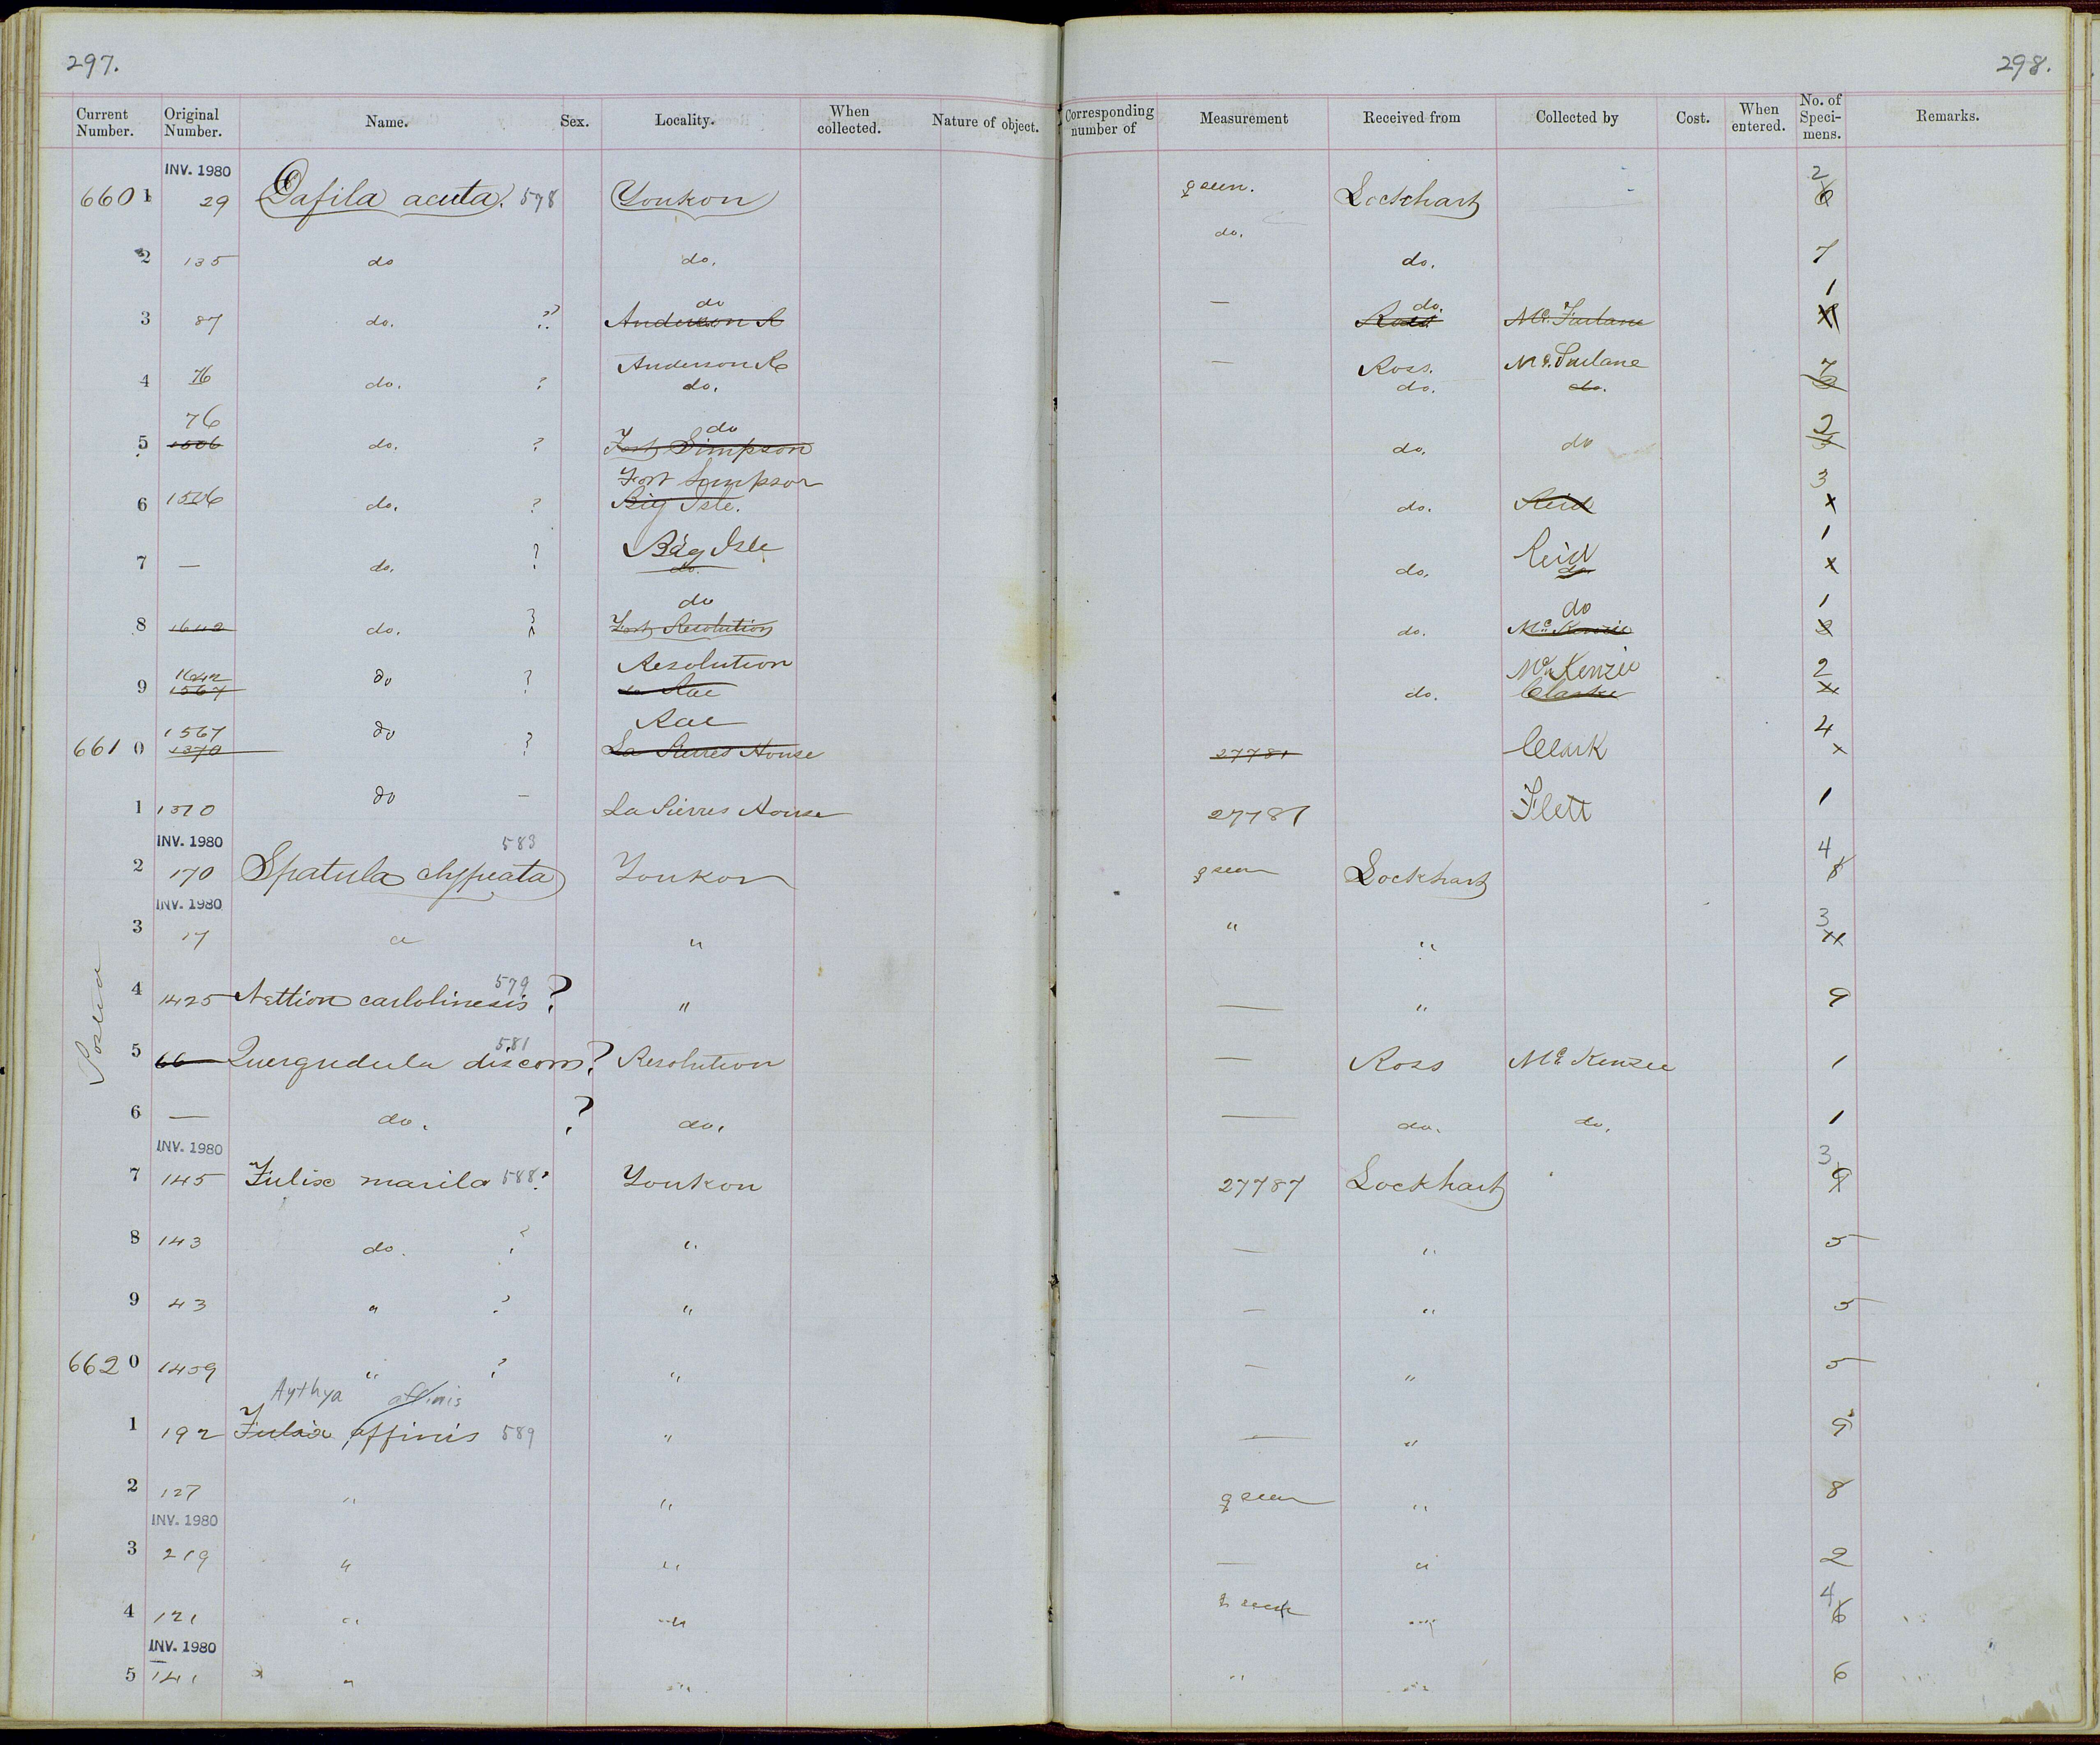 297.
298.
Current Number. Original Number. Name. Sex. Locality. When collected. Nature of object. Corresponding number of Measurement Received from Collected by Cost. When entered. No. of Specimens. Remarks.
INV. 1980
6601 29 Dafila acuta. 578 Youkon ♀ seen. Lockhart 2 6
2 135 do do. do. do. 7
3 87 do. ? do Anderson R — do. Ross McFarlane 1
4 76 do. ? Anderson R do. — Ross. do. McFarlane do. 7
5 76 1506 do. ? do Fort Simpson do. do 2
6 1506 do. ? Fort Simpson Big Isle. do. Reid 3
7 — do. ? Big Isle do. do. Reid do 1
8 1642 do. ? do Fort Resolution do. do McKenzie 1
9 1642 1567 do ? Resolution Rae do. McKenzie Clarke 2
6610 1567 1370 do ? Rae La Pierres House 27781 Clark 4
1 1370 do — La Pierres House 27781 Flett 1
INV. 1980 583
2 170 Spatula clypeata Youkon ♀ seen Lockhart 4 8
INV. 1980
3 17 " " " " 3
579
4 1425 Nettion carlolinesis ? " — " 9
581
5 66 Querquedula discors ? Resolution — Ross McKenzie 1
6 — do. ? do. — do. do. 1
INV. 1980
7 145 Fulix marila 588 ? Youkon 27787 Lockhart 3 9
8 143 do. ? " — " 5
9 43 " ? " — " 5
6620 1459 " ? " — " 5
Aythya affinis
1 192 Fulix affinis 589 " — " 9
2 127 " " ♀ seen " 8
INV. 1980
3 219 " " — " 2
4 121 " " " 4 6
INV. 1980
5 141 " " " " 6